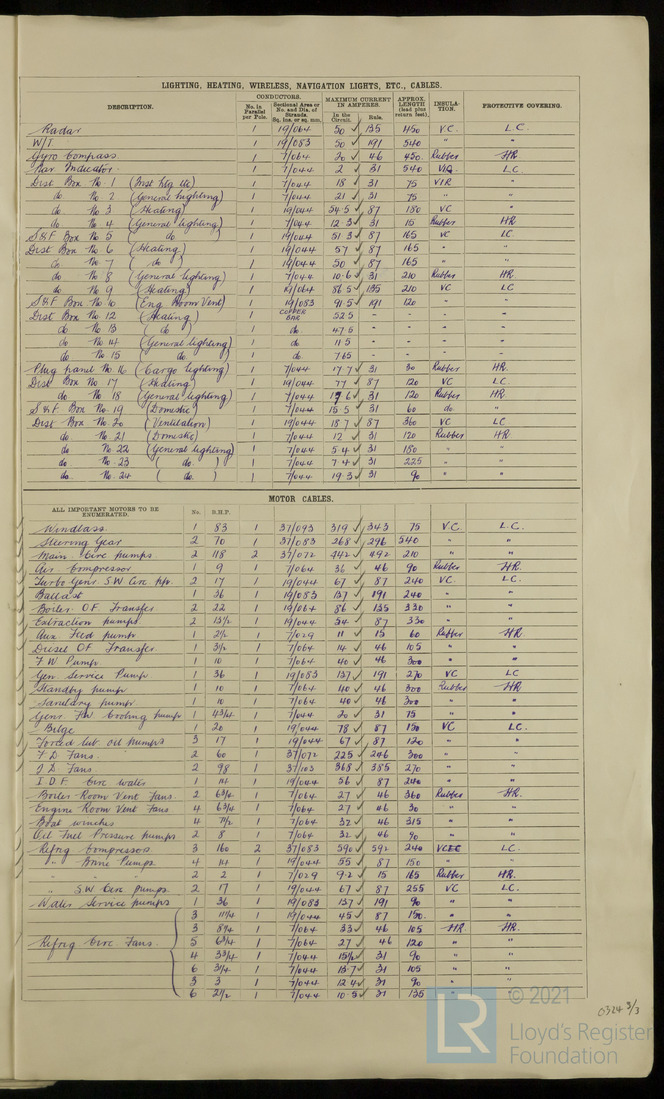 LIGHTING, HEATING, WIRELESS, NAVIGATION LIGHTS, ETC., CABLES.
DESCRIPTION. CONDUCTORS. No. in Parallel per Pole. Sectional Area or No. and Dia. of Strands. Sq. Ins. or sq. mm. MAXIMUM CURRENT IN AMPERES. In the Circuit. Rule. APPROX. LENGTH (lead plus return feet). INSULATION. PROTECTIVE COVERING.
Radar 1 19/064 50 ✓ 135 450 V.C. L.C.
W/T. 1 19/083 50 ✓ 191 540 " "
Gyro Compass 1 7/064 20 ✓ 46 450 Rubber HR
Indicator 1 7/044 2 ✓ 31 540 L.C.
Dist Box No. 1 (Inst ltg etc) 1 7/044 18 ✓ 31 75 VIR "
do No. 2 (General lighting) 1 7/044 21 ✓ 31 75 " "
do No. 3 (Heating) 1 19/044 54.5 ✓ 87 180 VC "
do No. 4 (General lighting) 1 7/044 12.3 ✓ 31 15 Rubber HR
S&F Box No. 5 ( do ) 1 19/044 51.3 ✓ 87 165 VC LC
Dist Box No. 6 (Heating) 1 19/044 57 ✓ 87 165 " "
do No. 7 ( do ) 1 19/044 50 ✓ 87 165 " "
do No. 8 (General lighting) 1 7/044 10.6 ✓ 31 210 Rubber HR.
do No. 9 (Heating) 1 19/064 86.5 ✓ 135 210 VC LC
S&F Box No. 10 (Eng Room Vent) 1 19/083 91.5 ✓ 191 120 " "
Dist Box No. 12 (Heating) COPPER BAR 52.5 - - - -
do No 13 ( do ) do 47.5 - - - -
do No 14 (General lighting) do 11.5 - - - -
do No 15 ( do ) do 76.5 - - - -
Plug panel No. 16 (Cargo lighting) 1 7/044 17.7 ✓ 31 30 Rubber HR.
Dist Box No 17 (Heating) 1 19/044 77 ✓ 87 120 VC LC.
do No 18 (General lighting) 1 7/044 ✓ 31 120 Rubber HR.
S&F Box No. 19 (Domestic) 1 7/044 ✓ 31 60 do. "
Dist Box No. 20 (Ventilation) 1 19/044 18.7 ✓ 87 360 VC LC
do No. 21 (Domestic) 1 7/044 12 ✓ 31 120 Rubber HR
do No 22 (General lighting) 1 7/044 5.4 ✓ 31 180 " "
do No. 23 ( do. ) 1 7/044 7.4 ✓ 31 225 " "
do No. 24 ( do. ) 1 7/044 19.3 ✓ 31 90 " "
MOTOR CABLES.
ALL IMPORTANT MOTORS TO BE ENUMERATED. No. B.H.P.
Windlass 1 83 1 37/093 319 ✓ 343 75 V.C. L.C.
Steering Gear 2 70 1 37/083 268 ✓ 296 540 " "
Main Circ pumps 2 118 2 37/072 442 ✓ 492 210 " "
Air Compressor 1 9 1 7/064 36 ✓ 46 90 Rubber HR.
Turbo Genr. S.W. Circ pp. 2 17 1 19/044 67 ✓ 87 240 VC L.C.
Ballast 1 36 1 19/083 137 ✓ 191 240 " "
Boiler O.F. Transfer 2 22 1 19/064 86 ✓ 135 330 " "
Extraction pumps 2 13½ 1 19/044 54 ✓ 87 330 " "
Aux. Feed pump 1 2½ 1 7/029 11 ✓ 15 60 Rubber HR
Diesel O.F. Transfer 1 3½ 1 7/064 14 ✓ 46 105 " "
F.W. Pump 1 10 1 7/064 40 ✓ 46 300 " "
Gen Service Pump 1 36 1 19/083 137 ✓ 191 270 VC LC
Standby pump 1 10 1 7/064 40 ✓ 46 300 Rubber HR
Sanitary pump 1 10 1 7/064 40 ✓ 46 300 " "
Genr. F.W. Cooling pump 1 4¾ 1 7/044 20 ✓ 31 75 " "
Bilge 1 20 1 19/044 78 ✓ 87 150 VC L.C.
Forced lub. oil pumps 3 17 1 19/044 67 ✓ 87 120 " "
F.D. Fans 2 60 1 37/072 225 ✓ 246 300 " "
I.D. Fans 2 98 1 37/103 368 ✓ 385 270 " "
I.D.F. Circ water 1 14 1 19/044 56 ✓ 87 240 " "
Boiler Room Vent Fans. 2 6¾ 1 7/064 27 ✓ 46 360 Rubber HR.
Engine Room Vent Fans 4 6¾ 1 7/064 27 ✓ 46 30 " "
Boat winches 4 7½ 1 7/064 32 ✓ 46 315 " "
Oil Fuel Pressure pumps 2 8 1 7/064 32 ✓ 46 90 " "
Refrig Compressors 3 160 2 37/083 590 ✓ 592 240 LC.
" Brine Pumps 4 14 1 19/044 55 ✓ 87 150 " "
" " " 2 2 1 7/029 9.2 ✓ 15 165 Rubber HR.
" S.W. Circ pumps 2 17 1 19/044 67 ✓ 87 255 VC L.C.
Water Service pumps 1 36 1 19/083 137 ✓ 191 90 " "
3 11¼ 1 19/044 45 ✓ 87 150. " "
3 8¼ 1 7/064 33 ✓ 46 105 HR. HR.
Refrig Circ. Fans. 5 6¾ 1 7/064 27 ✓ 46 120 " "
4 3¾ 1 7/044 15½ ✓ 31 90 " "
6 3¼ 1 7/044 13.7 ✓ 31 105 " "
3 3 1 7/044 12.4 ✓ 31 90 " "
6 2½ 1 7/044 10.3 ✓ 31 135 " "
0324 3/3
LR © 2021
Lloyd's Register
Foundation